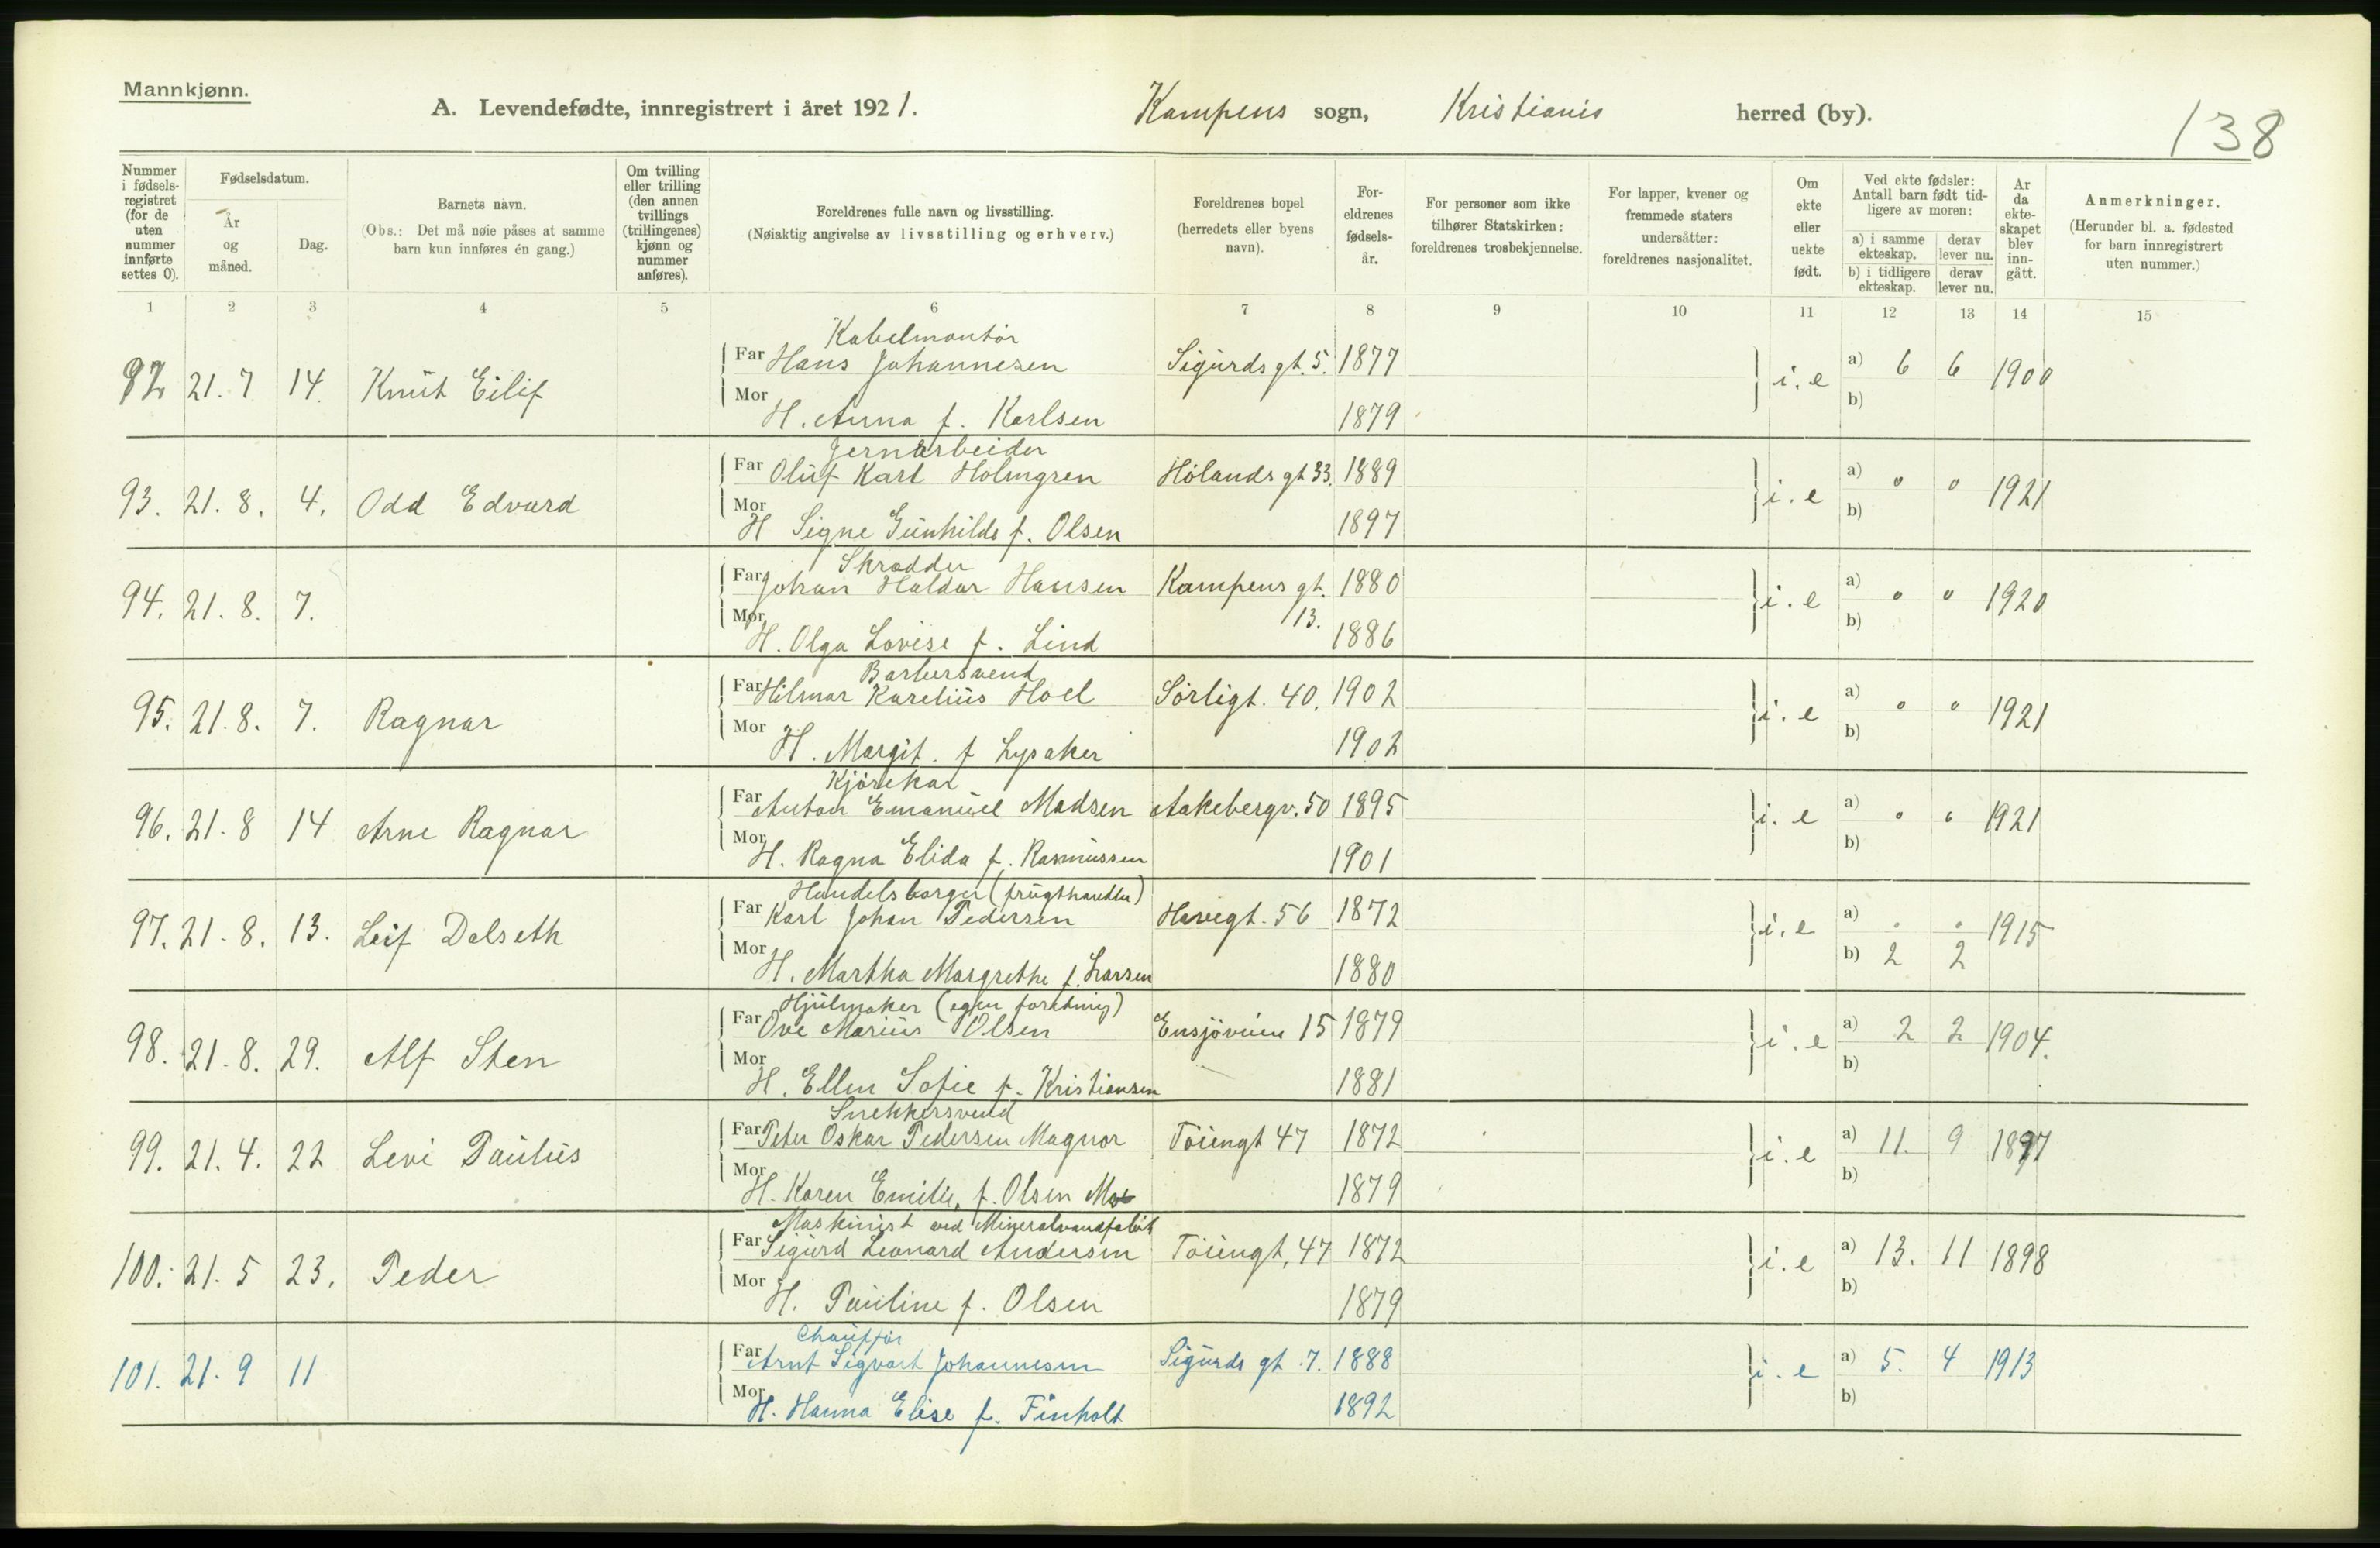 Mannkjønn.
A. Levendefødte, innregistrert i året 1921. Kampens sogn, Kristiania herred (by).
138
Nummer i fødsels-registret (for de uten nummer innførte settes 0).
Fødselsdatum.
År og måned.
Dag.
Barnets navn.
(Obs.: Det må nøie påses at samme barn kun innføres én gang.)
Om tvilling eller trilling (den annen tvillings (trillingenes) kjønn og nummer anføres).
Foreldrenes fulle navn og livsstilling.
(Nøiaktig angivelse av livsstilling og erhverv.)
Foreldrenes bopel (herredets eller byens navn).
For-eldrenes fødsels-år.
For personer som ikke tilhører Statskirken: foreldrenes trosbekjennelse.
For lapper, kvener og fremmede staters undersåtter: foreldrenes nasjonalitet.
Om ekte eller uekte født.
Ved ekte fødsler: Antall barn født tid-ligere av moren:
a) i samme ekteskap. derav lever nu.
b) i tidligere ekteskap. derav lever nu.
Ar da ekte-skapet blev inn-gått.
Anmerkninger.
(Herunder bl. a. fødested for barn innregistrert uten nummer.)
1 2 3 4 5 6 7 8 9 10 11 12 13 14 15
Kabelmontør
92 21.7 14. Knut Eilif Far Hans Johannesen Sigurds gt. 5. 1877 i. e a) 6 6 1900
Mor H. Anna f. Karlsen 1879 b)
Jernarbeider
93. 21. 8. 4. Odd Edvard Far Oluf Karl Holmgren Hølands gt 33. 1889 i. e a) " " 1921
Mor H Signe Gunhilda f. Olsen 1897 b)
Skrædder
94. 21. 8. 7. Far Johan Haldar Hansen Kampens gt. 13. 1880 i. e a) " " 1920
Mor H. Olga Lovise f. Lind 1886 b)
Barbersvend
95. 21. 8. 7. Ragnar Far Hilmar Karelius Hoel Sørligt. 40. 1902 i. e a) " " 1921
Mor H. Margit. f Lysaker 1902 b)
Kjørekar
96. 21. 8 14 Arne Ragnar Far Anton Emanuel Madsen Aakebergv. 50 1895 i. e a) " " 1921
Mor H. Ragna Elida f. Rasmussen 1901 b)
Handelsborger (frugthandler)
97. 21. 8. 13. Leif Dalseth Far Karl Johan Pedersen Havegt. 56 1872 i. e a) . . 1915
Mor H. Martha Margrethe f. Larsen 1880 b) 2 2
Hjulmaker (egen forretning)
98. 21. 8. 29. Alf Sten Far Ove Marius Olsen Ensjøveien 15 1879 i. e a) 2 2 1904.
Mor H. Ellen Sofie f. Kristiansen 1881 b)
Snekkersvend
99. 21. 4. 22 Levi Paulus Far Peter Oskar Pedersen Magnor Töiengt 47 1872 i. e a) 11. 9 1897
Mor H. Karen Emilie, f. Olsen 1879 b)
Maskinist ved Mineralvandfabrik
100. 21. 5 23. Peder Far Sigurd Leonard Andersen Töiengt, 47 1872 i. e a) 13. 11 1898
Mor H. Pauline f. Olsen 1879 b)
Chauffør
101. 21. 9 11 Far Arnt Sigvart Johannesen Sigurds gt. 7. 1888 i. e a) 5. 4 1913
Mor H. Hanna Elise f. Finholt 1892 b)